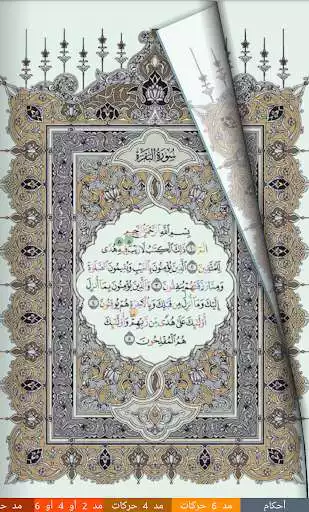 سُورَةُ البَقَرَةِ
بِسْمِ ٱللَّهِ ٱلرَّحْمَٰنِ ٱلرَّحِيمِ
الٓمٓ ١ ذَٰلِكَ ٱلْكِتَٰبُ لَا رَيْبَ فِيهِ هُدًى
لِّلْمُتَّقِينَ ٢ ٱلَّذِينَ يُؤْمِنُونَ بِٱلْغَيْبِ وَيُقِيمُونَ ٱلصَّلَوٰةَ
وَمِمَّا رَزَقْنَٰهُمْ يُنفِقُونَ ٣ وَٱلَّذِينَ يُؤْمِنُونَ بِمَآ أُنزِلَ
إِلَيْكَ وَمَآ أُنزِلَ مِن قَبْلِكَ وَبِٱلْءَاخِرَةِ هُمْ يُوقِنُونَ ٤
أُو۟لَٰٓئِكَ عَلَىٰ هُدًى مِّن رَّبِّهِمْ وَأُو۟لَٰٓئِكَ
هُمُ ٱلْمُفْلِحُونَ ٥
أحكام مد 6 حركات مد 4 حركات مد 2 أو 4 أو 6 مد